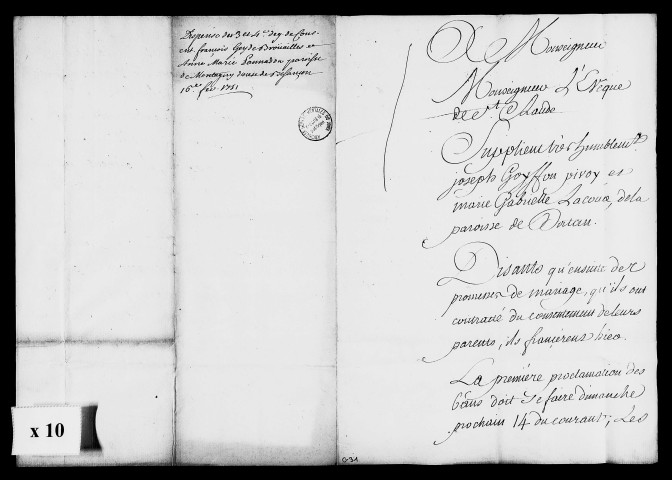 Dispense du 3 et 4e deg de Cons
ent. françois Goy de Brouailles et
Anne Marie Bonnadon paroisse
de Montagny diocese de Besançon
16e fev 1751
A Monseigneur
Monseigneur L'Eveque
de St. Claude
Supplient très humblemt.
joseph Goyffon pivoy et
marie Gabrielle Lacoua, de la
paroisse de Dortan.
Disants qu'ensuite des
promesses de mariage, qu'ils ont
contracté du consentement de leurs
parents, ils fiancérent hier.
La première proclamation des
bans doit se faire dimanche
prochain 14 du courant; Les
x 10
G 31